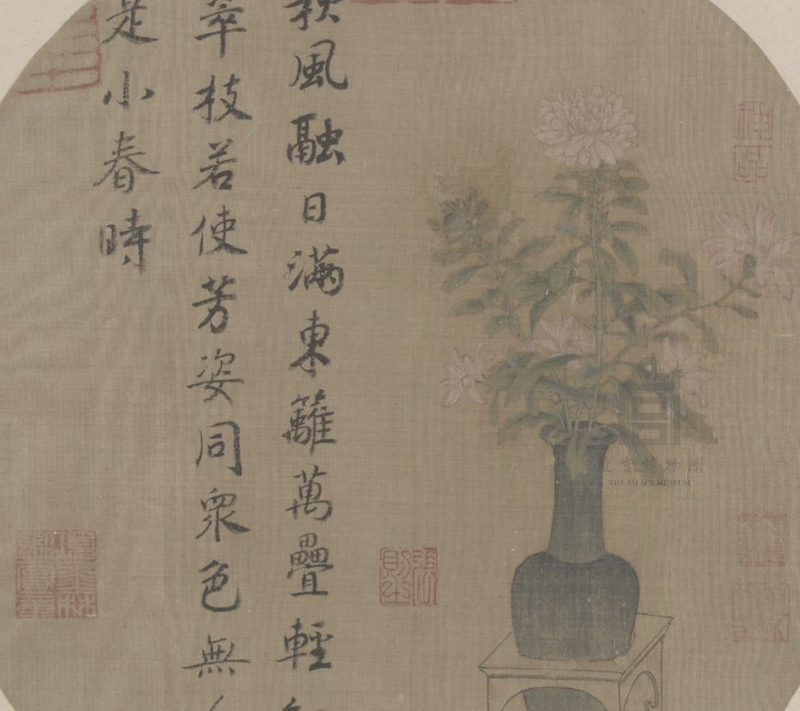 秋風融日滿東籬萬疊輕
翠枝若使芳姿同衆色無
是小春時
THE PALACE MUSEUM